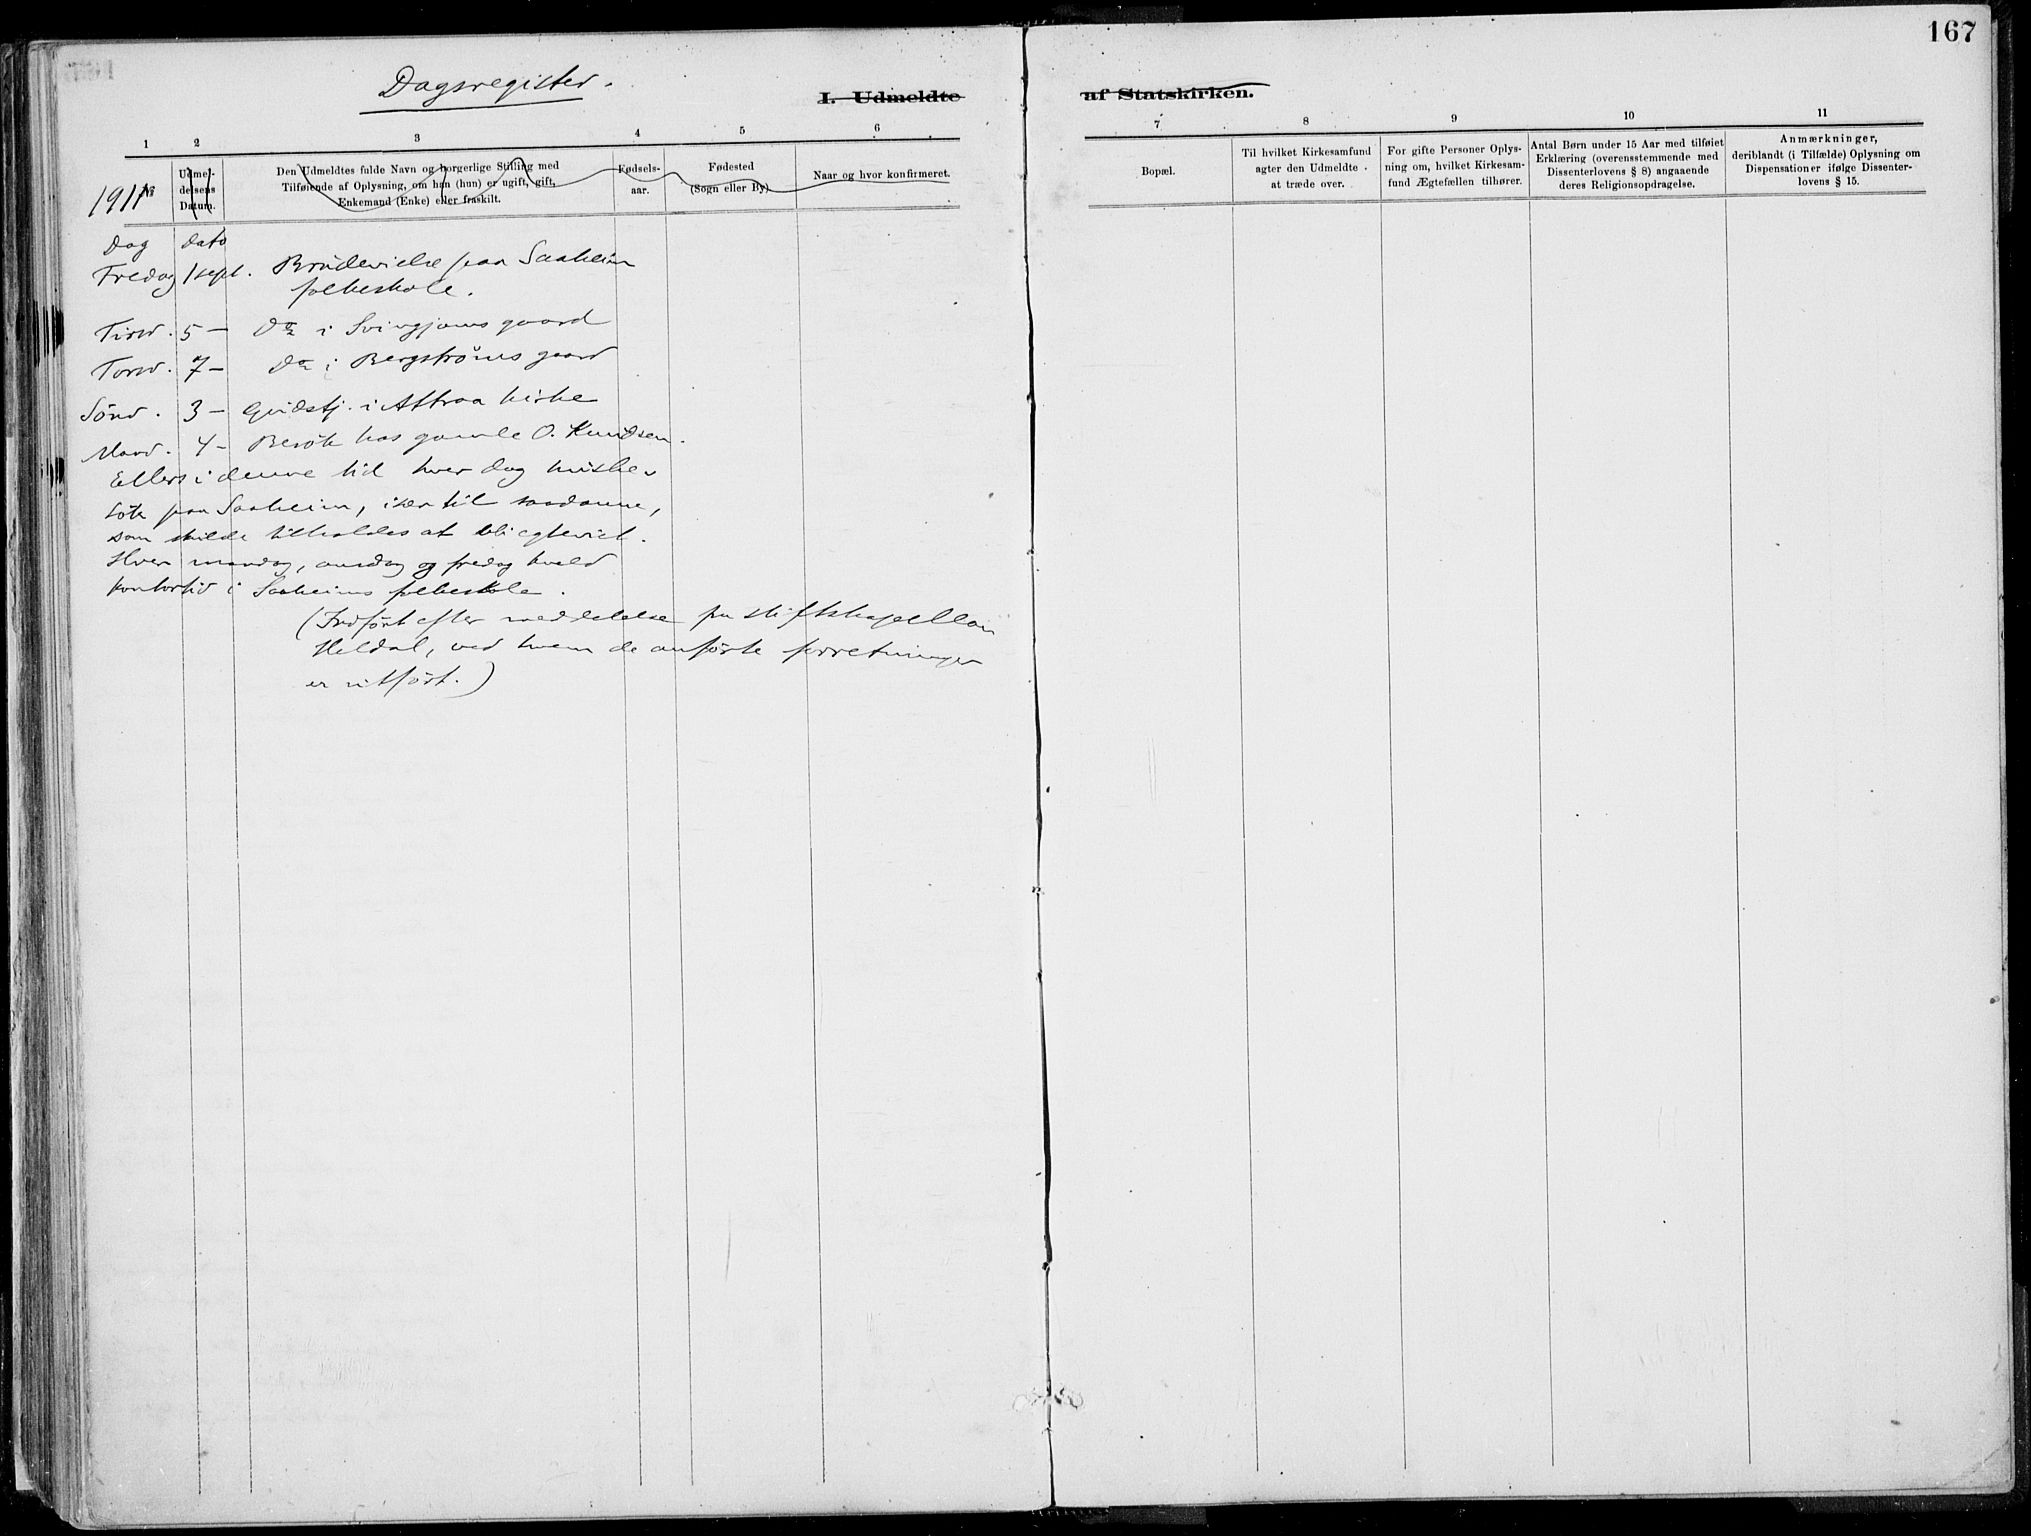 167
Dagsregister.
I. Udmeldte af Statskirken.
1 2 3 4 5 6 7 8 9 10 11
1911
№
Udmel-
delsens
Datum.
Den Udmeldtes fulde Navn og borgerlige Stilling med
Tilføiende af Oplysning, om han (hun) er ugift, gift,
Enkemand (Enke) eller fraskilt.
Fødsels-
aar.
Fødested
(Sogn eller By)
Naar og hvor konfirmeret.
Bopæl.
Til hvilket Kirkesamfund
agter den Udmeldte
at træde over.
For gifte Personer Oplys-
ning om, hvilket Kirkesam-
fund Ægtefællen tilhører.
Antal Børn under 15 Aar med tilføiet
Erklæring (overensstemmende med
Dissenterlovens § 8) angaaende
deres Religionsopdragelse.
Anmærkninger,
deriblandt (i Tilfælde) Oplysning om
Dispensationer ifølge Dissenter-
lovens § 15.
Dag dato
Fredag 1 sept. Brudevielse paa Saaheim
folkeskole.
Tirsd. 5 — Do i Svingjoms gaard
Torsd. 7 — Do i Bergstrøms gaard
Sönd. 3 — Gudstj. i Attraa kirke
Mand. 4 — Besök hos gamle O. Knudsen.
Ellers i denne tid hver dag husbe-
sök paa Saaheim, især til saadanne,
som skulde tilholdes at bli egteviet.
Hver mandag, onsdag og fredag kveld
kontortid i Saaheims folkeskole.
(Indfört efter meddelelse fra stiftskapellan
Heldal, ved hvem de anförte forretninger
er utfört.)